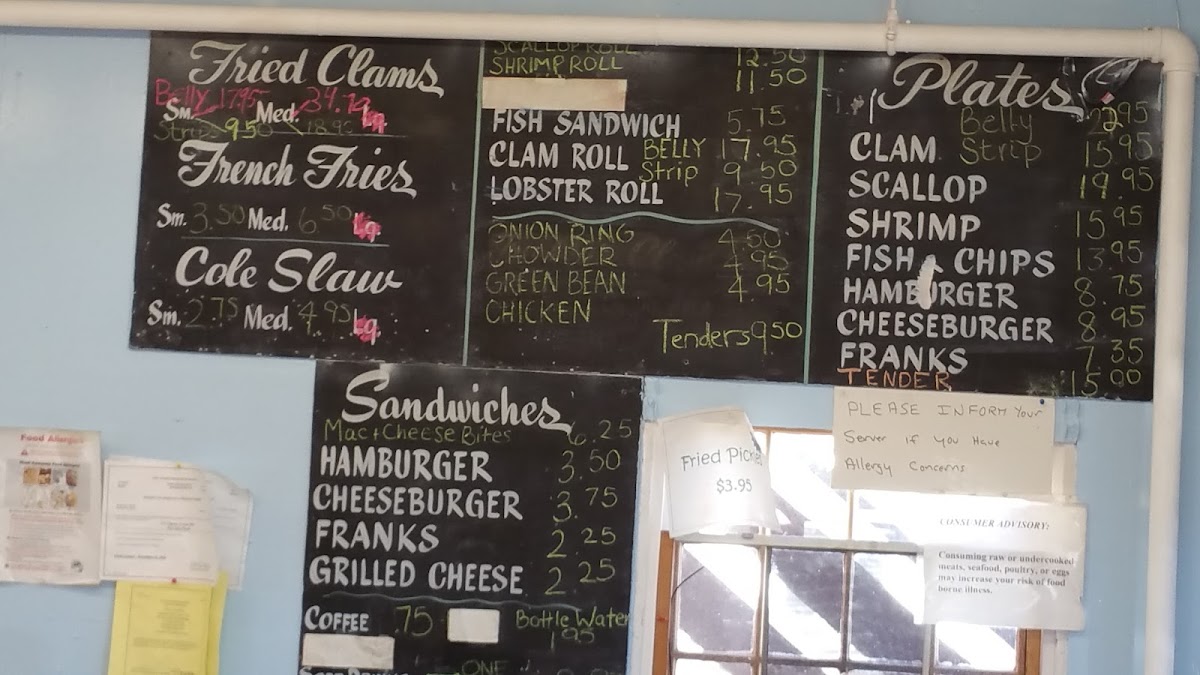 Fried Clams
Belly 17.95
Sm. Med. Lg.
Strip 9.50 18.95
French Fries
Sm. 3.50 Med. 6.50 Lg.
Cole Slaw
Sm. 2.75 Med. 4.95 Lg.
SCALLOP ROLL 12.50
SHRIMP ROLL 11.50
FISH SANDWICH 5.75
CLAM ROLL BELLY 17.95
Strip 9.50
LOBSTER ROLL 17.95
ONION RING 4.50
CHOWDER 4.95
GREEN BEAN 4.95
CHICKEN
Tenders 9.50
Plates
Belly 22.95
CLAM Strip 15.95
SCALLOP 19.95
SHRIMP 15.95
FISH & CHIPS 13.95
HAMBURGER 8.75
CHEESEBURGER 8.95
FRANKS 7.35
TENDER 15.00
Sandwiches
Mac + Cheese Bites 6.25
HAMBURGER 3.50
CHEESEBURGER 3.75
FRANKS 2.25
GRILLED CHEESE 2.25
COFFEE .75 Bottle Water
1.95
ONE
Fried Pickle
$3.95
PLEASE INFORM Your
Server if You Have
Allergy Concerns
CONSUMER ADVISORY:
Consuming raw or undercooked
meats, seafood, poultry, or eggs
may increase your risk of food
borne illness.
Food Allergies